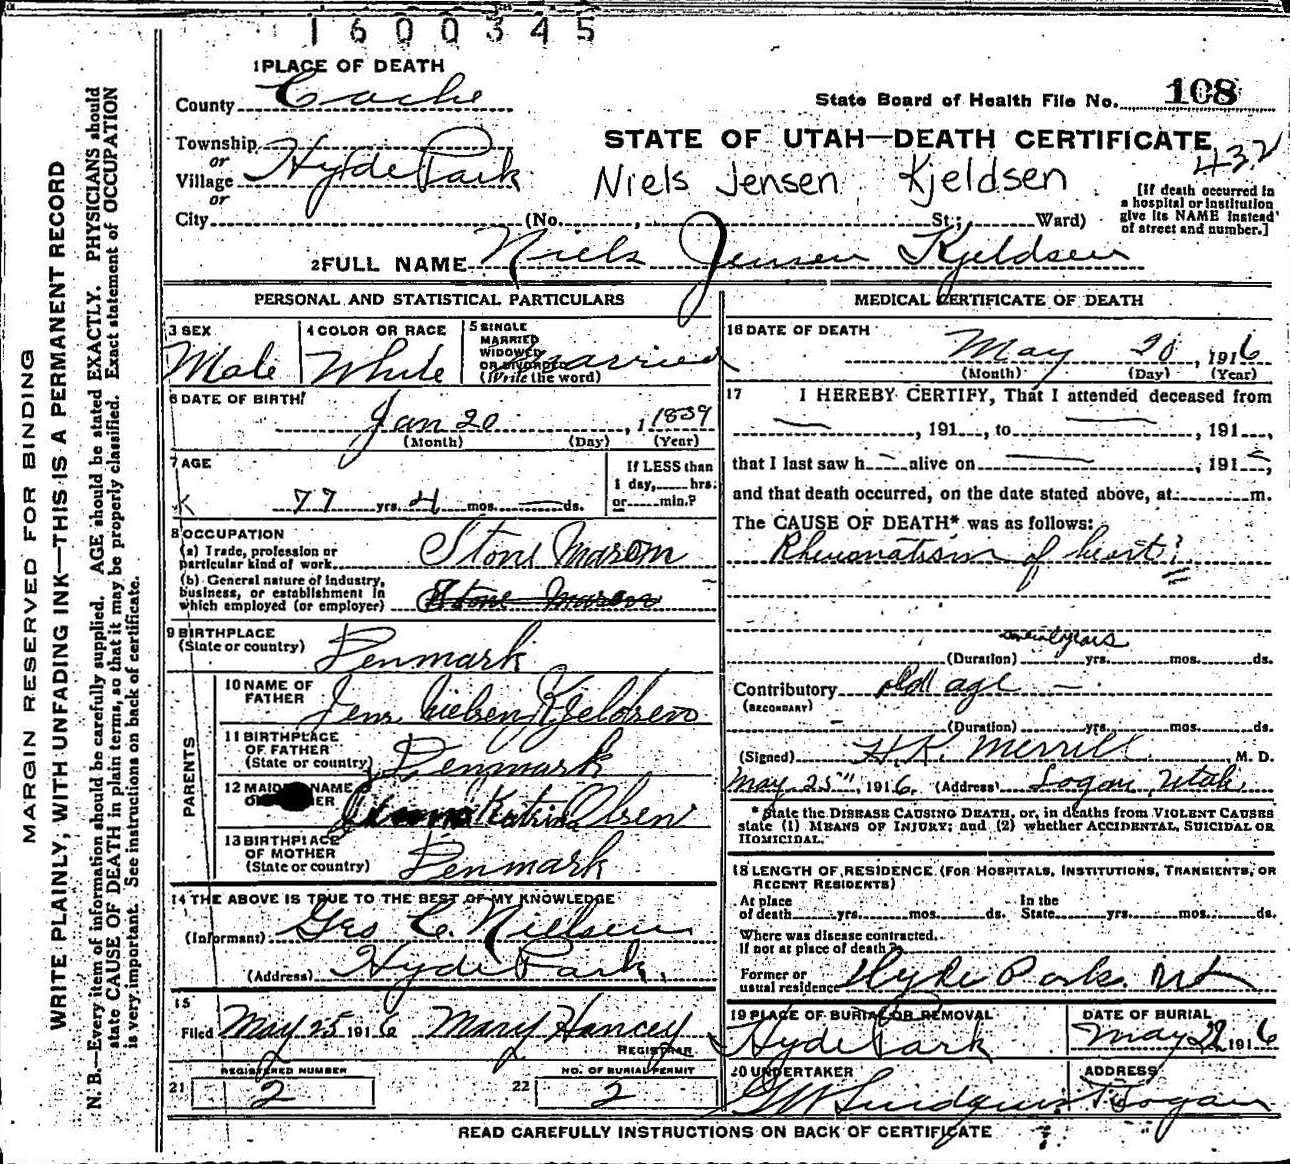 1600345
1 PLACE OF DEATH
County Cache
State Board of Health File No. 108
Township
or
Village Hyde Park
or
City (No. St.; Ward)
STATE OF UTAH—DEATH CERTIFICATE
432
Niels Jensen Kjeldsen
[If death occurred in
a hospital or institution
give its NAME instead
of street and number.]
2 FULL NAME Niels Jensen Kjeldsen
PERSONAL AND STATISTICAL PARTICULARS
3 SEX
Male
4 COLOR OR RACE
White
5 SINGLE
MARRIED
WIDOWED
OR DIVORCED
(Write the word)
Married
6 DATE OF BIRTH
Jan 20, 1839
(Month) (Day) (Year)
7 AGE
77 yrs. 4 mos. — ds.
If LESS than
1 day, hrs.
or min.?
8 OCCUPATION
(a) Trade, profession or
particular kind of work Stone Mason
(b) General nature of industry,
business, or establishment in
which employed (or employer) Stone Mason
9 BIRTHPLACE
(State or country) Denmark
PARENTS
10 NAME OF
FATHER Jens Nielsen Kjeldsen
11 BIRTHPLACE
OF FATHER
(State or country) Denmark
12 MAIDEN NAME
OF MOTHER Katrina Olsen
13 BIRTHPLACE
OF MOTHER
(State or country) Denmark
14 THE ABOVE IS TRUE TO THE BEST OF MY KNOWLEDGE
(Informant) Geo C. Nielsen
(Address) Hyde Park
15
Filed May 25 1916 Mary Hancey
REGISTRAR
REGISTERED NUMBER
21 2
NO. OF BURIAL PERMIT
22 2
MEDICAL CERTIFICATE OF DEATH
16 DATE OF DEATH
May 20, 1916
(Month) (Day) (Year)
17 I HEREBY CERTIFY, That I attended deceased from
—, 191, to —, 191,
that I last saw h— alive on —, 191—,
and that death occurred, on the date stated above, at m.
The CAUSE OF DEATH* was as follows:
Rheumatism of heart?
several years
(Duration) yrs. mos. ds.
Contributory old age —
(SECONDARY)
(Duration) yrs. mos. ds.
(Signed) H.K. Merrill, M. D.
May 25", 1916. (Address) Logan, Utah.
* State the DISEASE CAUSING DEATH, or, in deaths from VIOLENT CAUSES
state (1) MEANS OF INJURY; and (2) whether ACCIDENTAL, SUICIDAL OR
HOMICIDAL.
18 LENGTH OF RESIDENCE (FOR HOSPITALS, INSTITUTIONS, TRANSIENTS, OR
RECENT RESIDENTS)
At place
of death yrs. mos. ds.
In the
State yrs. mos. ds.
Where was disease contracted.
If not at place of death?
Former or
usual residence Hyde Park. Ut
19 PLACE OF BURIAL OR REMOVAL
Hyde Park
DATE OF BURIAL
May 22 1916
20 UNDERTAKER
GW Lindquist
ADDRESS
Logan
READ CAREFULLY INSTRUCTIONS ON BACK OF CERTIFICATE
MARGIN RESERVED FOR BINDING
WRITE PLAINLY, WITH UNFADING INK—THIS IS A PERMANENT RECORD
N. B.—Every item of information should be carefully supplied. AGE should be stated EXACTLY. PHYSICIANS should
state CAUSE OF DEATH in plain terms, so that it may be properly classified. Exact statement of OCCUPATION
is very important. See instructions on back of certificate.